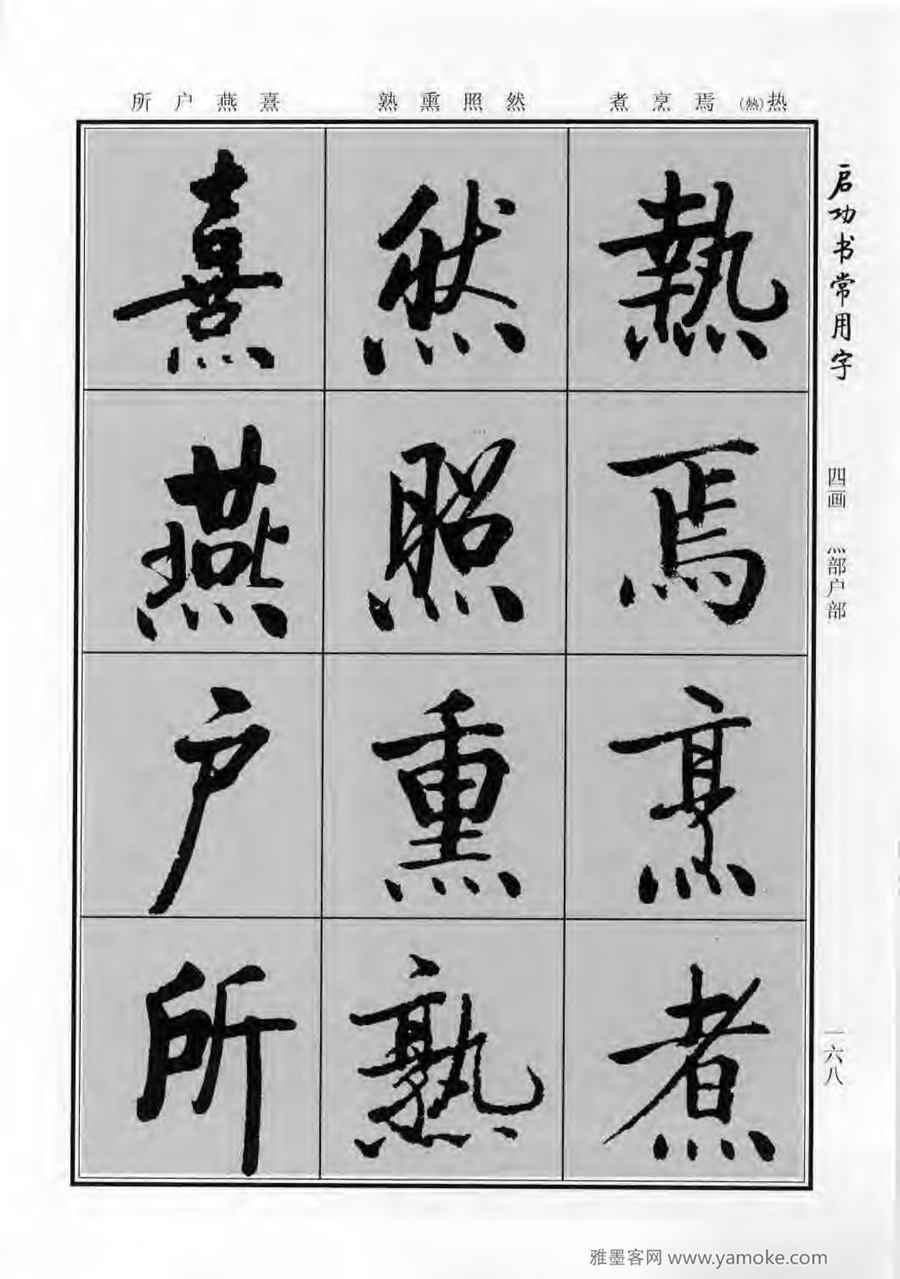 热(熱)焉烹煮 然照熏熟 熹燕户所
启功书常用字
四画 灬部户部
一六八
熱焉烹煮
然照熏熟
熹燕户所
雅墨客网 www.yamoke.com